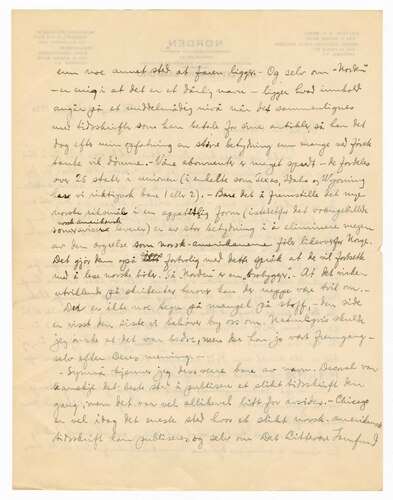 enn noe annet sted at faren ligger. - Og selv om "Norden"
- en enig i at det er et dårlig navn - ligger hvad innhold
angår på et middelmådig nivå når det sammenlignes
med tidsskrifter som kan betale for sine artikler så har det
dog efter min opfatning en større betydning enn mange ved første
tanke vil dømme. - Våre abonnenter er meget spredt - de fordeles
over 25 stater i unionen (i enkelte som Texas, Idaho og Wyoming
har vi riktignok bare 1 eller 2). - Bare det å fremstille det nye
norske riksmål i en appetittlig form (istedetfor det
norsk-amerikanske
aviser leverer) er av stor betydning i å eliminere noget
av den ergelse som norsk-amerikanerne føler likeoverfor Norge.
Det gjør dem også fortrolig med dette språk at de vil fortsette
med å lese norske bøker. Så "Norden" er en "brobygger". At det siden
utviklende på skribenter herover kan der neppe være tvil om. -
Der er ikke noe tegn på mangel på stoff, - den side
er visst den siste vi behøver by oss om. Naturligvis skulde
jeg ønske at det var bedre, men der har jo vært fremgang -
selv efter Deres mening. -
kjenner jeg dessverre bare av navn. Decorah var
kanskje det beste sted å publisere et slikt tidsskrift den
gang, men det var vel allikevel litt for avsides. - Chicago
er vel idag det meste sted hvor et slikt norsk-amerikansk
tidsskrift kan publiseres og selv om Det Litterære Samfund
NORDEN